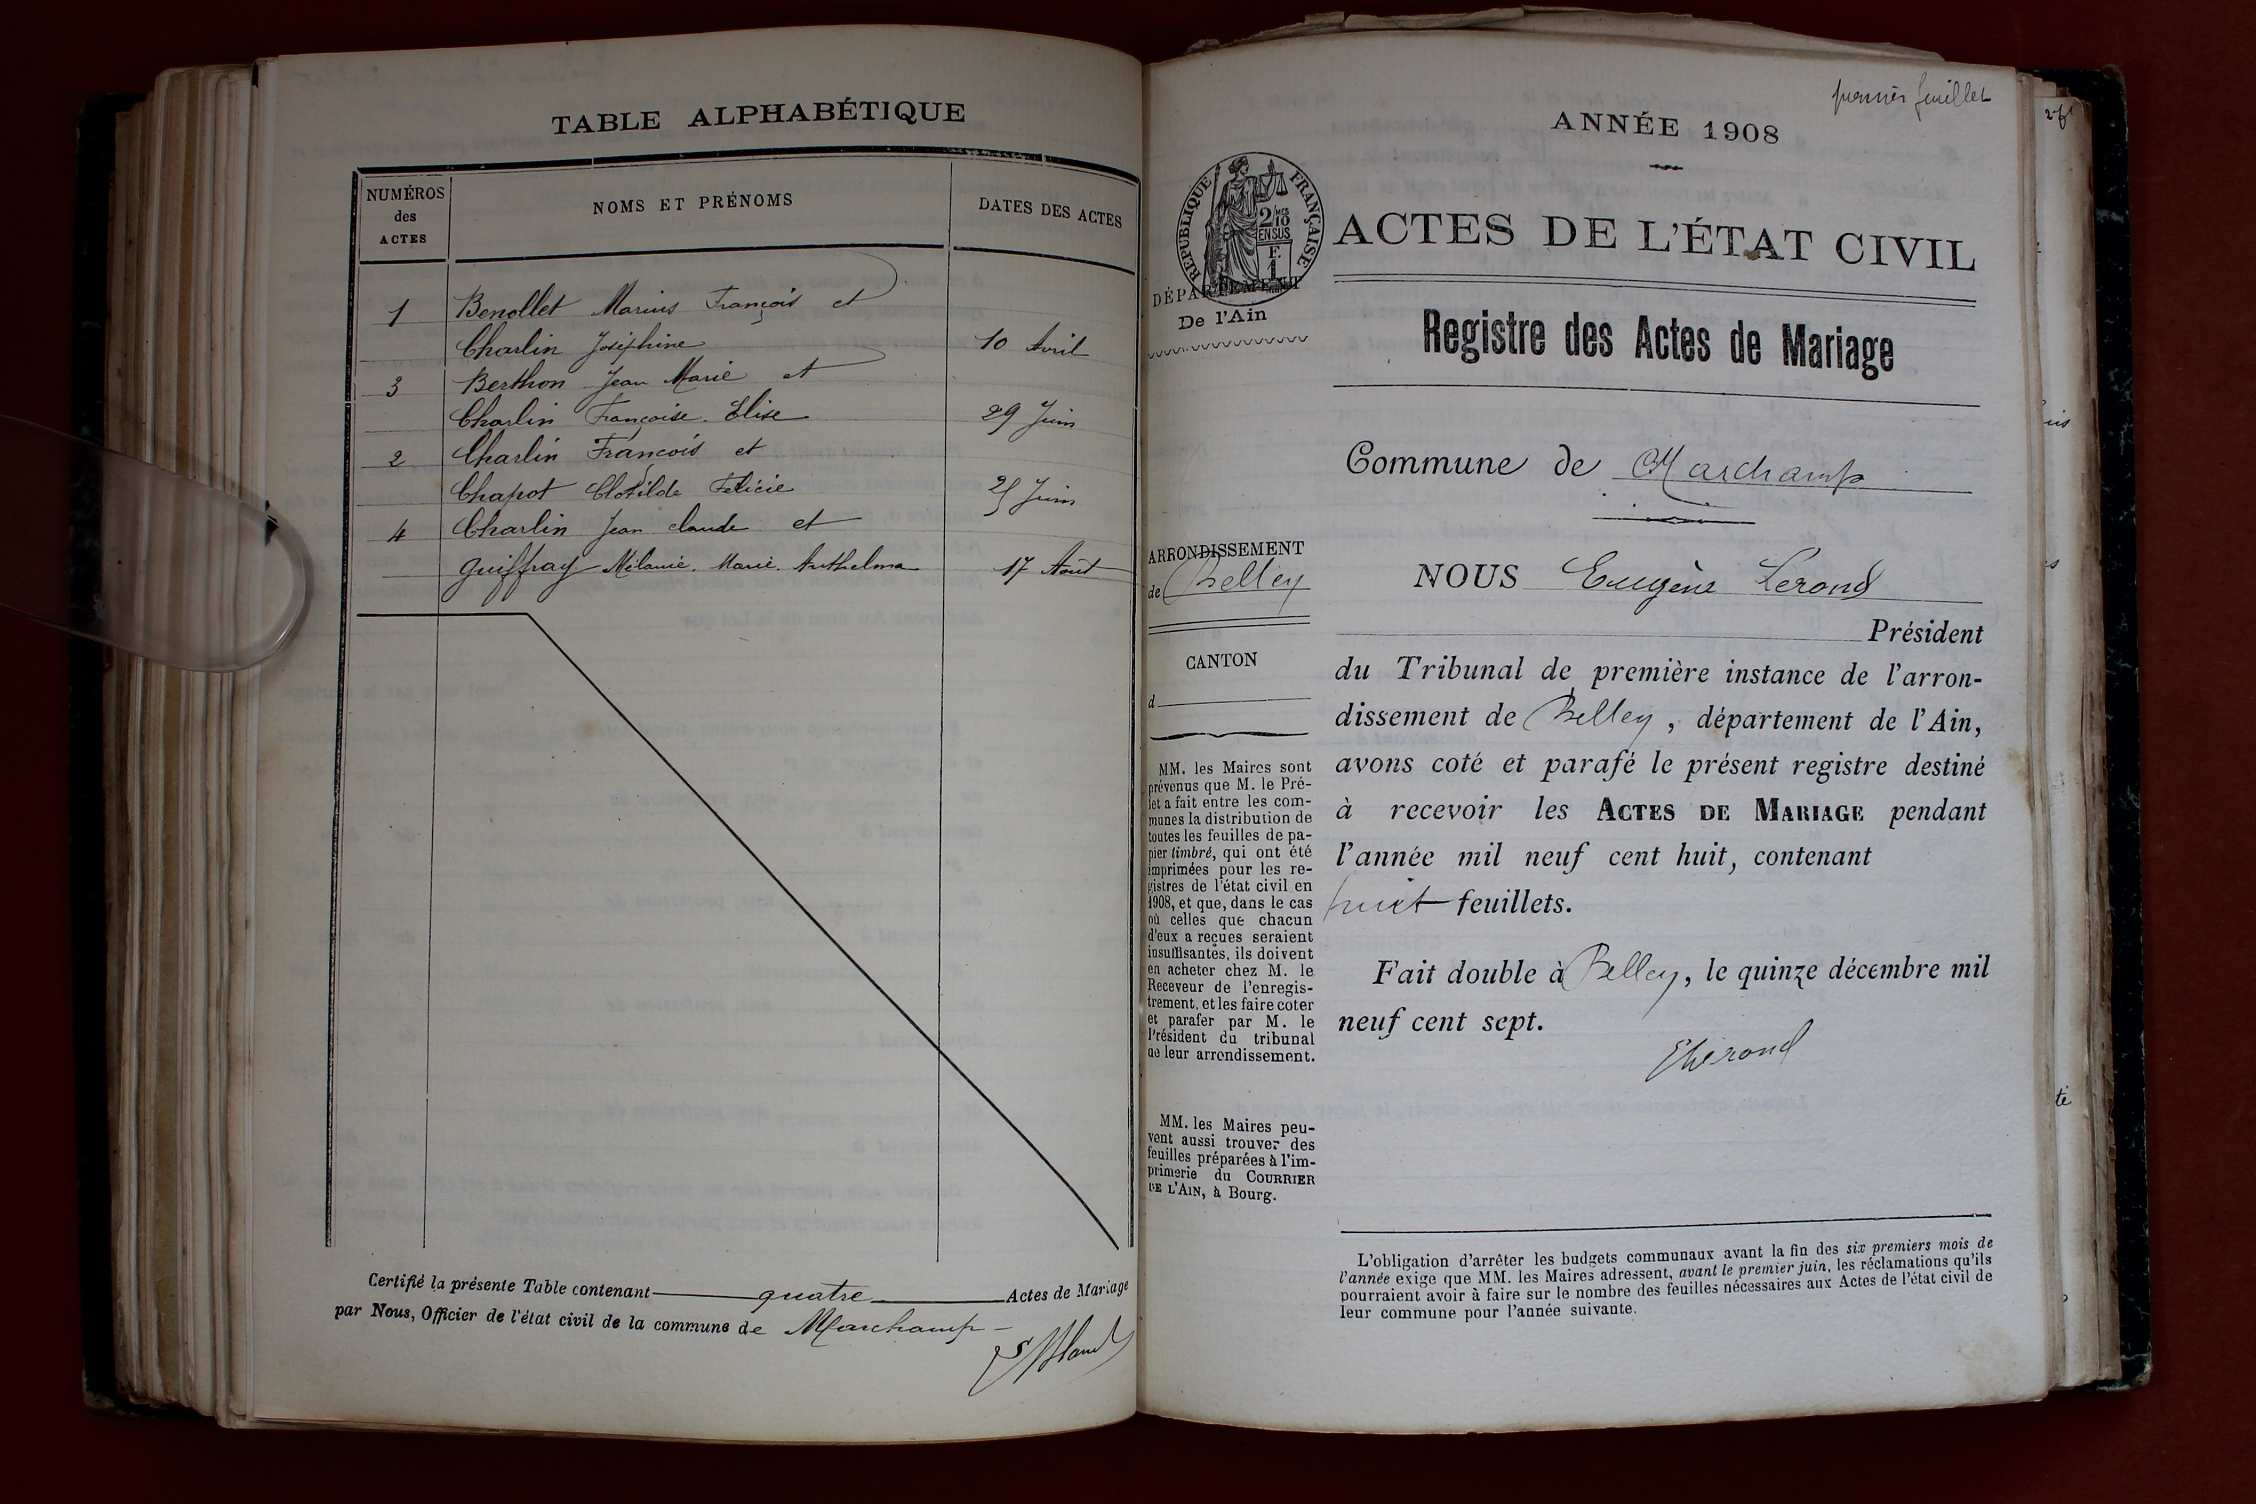 TABLE ALPHABÉTIQUE
NUMÉROS
des
ACTES
NOMS ET PRÉNOMS
DATES DES ACTES
1 Benollet Marius François et
Charlin Joséphine 10 Avril
3 Berthon Jean Marie et
Charlin Françoise Elise 29 Juin
2 Charlin François et
Chapot Clotilde Félicie 25 Juin
4 Charlin Jean claude et
Guiffray Mélanie Marie Anthelma 17 Août
Certifié la présente Table contenant quatre Actes de Mariage
par Nous, Officier de l'état civil de la commune de Marchamp
premier feuillet
ANNÉE 1908
RÉPUBLIQUE FRANÇAISE
2/10 MES
EN SUS
F.
1
ACTES DE L'ÉTAT CIVIL
DÉPARTEMENT
De l'Ain
Registre des Actes de Mariage
Commune de Marchamp
ARRONDISSEMENT
de Belley
CANTON
d
NOUS Eugène Lerond
Président
du Tribunal de première instance de l'arron-
dissement de Belley, département de l'Ain,
avons coté et parafé le présent registre destiné
à recevoir les ACTES DE MARIAGE pendant
l'année mil neuf cent huit, contenant
huit feuillets.
Fait double à Belley, le quinze décembre mil
neuf cent sept.
ELerond
MM. les Maires sont
prévenus que M. le Pré-
fet a fait entre les com-
munes la distribution de
toutes les feuilles de pa-
pier timbré, qui ont été
imprimées pour les re-
gistres de l'état civil en
1908, et que, dans le cas
où celles que chacun
d'eux a reçues seraient
insuffisantes, ils doivent
en acheter chez M. le
Receveur de l'enregis-
trement, et les faire coter
et parafer par M. le
Président du tribunal
de leur arrondissement.
MM. les Maires peu-
vent aussi trouver des
feuilles préparées à l'im-
primerie du COURRIER
DE L'AIN, à Bourg.
L'obligation d'arrêter les budgets communaux avant la fin des six premiers mois de
l'année exige que MM. les Maires adressent, avant le premier juin, les réclamations qu'ils
pourraient avoir à faire sur le nombre des feuilles nécessaires aux Actes de l'état civil de
leur commune pour l'année suivante.